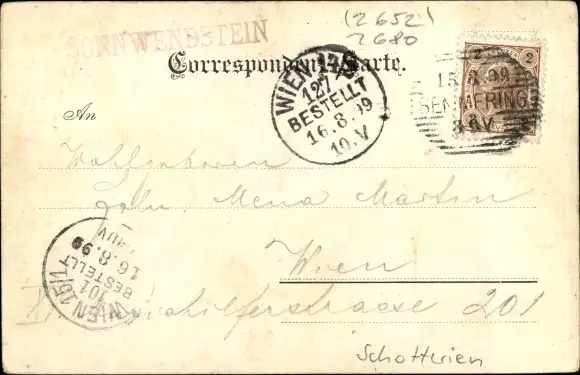 (2652)
2680
SONNWENDSTEIN
2 2
Correspondenz-Karte.
WIEN
127
BESTELLT
16.8.99
10.V
15.8.99
SEMMERING
An
Wohlgeboren
Mena Martin
Wien
Mariahilferstrasse 201
WIEN 15/1
101
BESTELLT
16.8.99
Schottwien